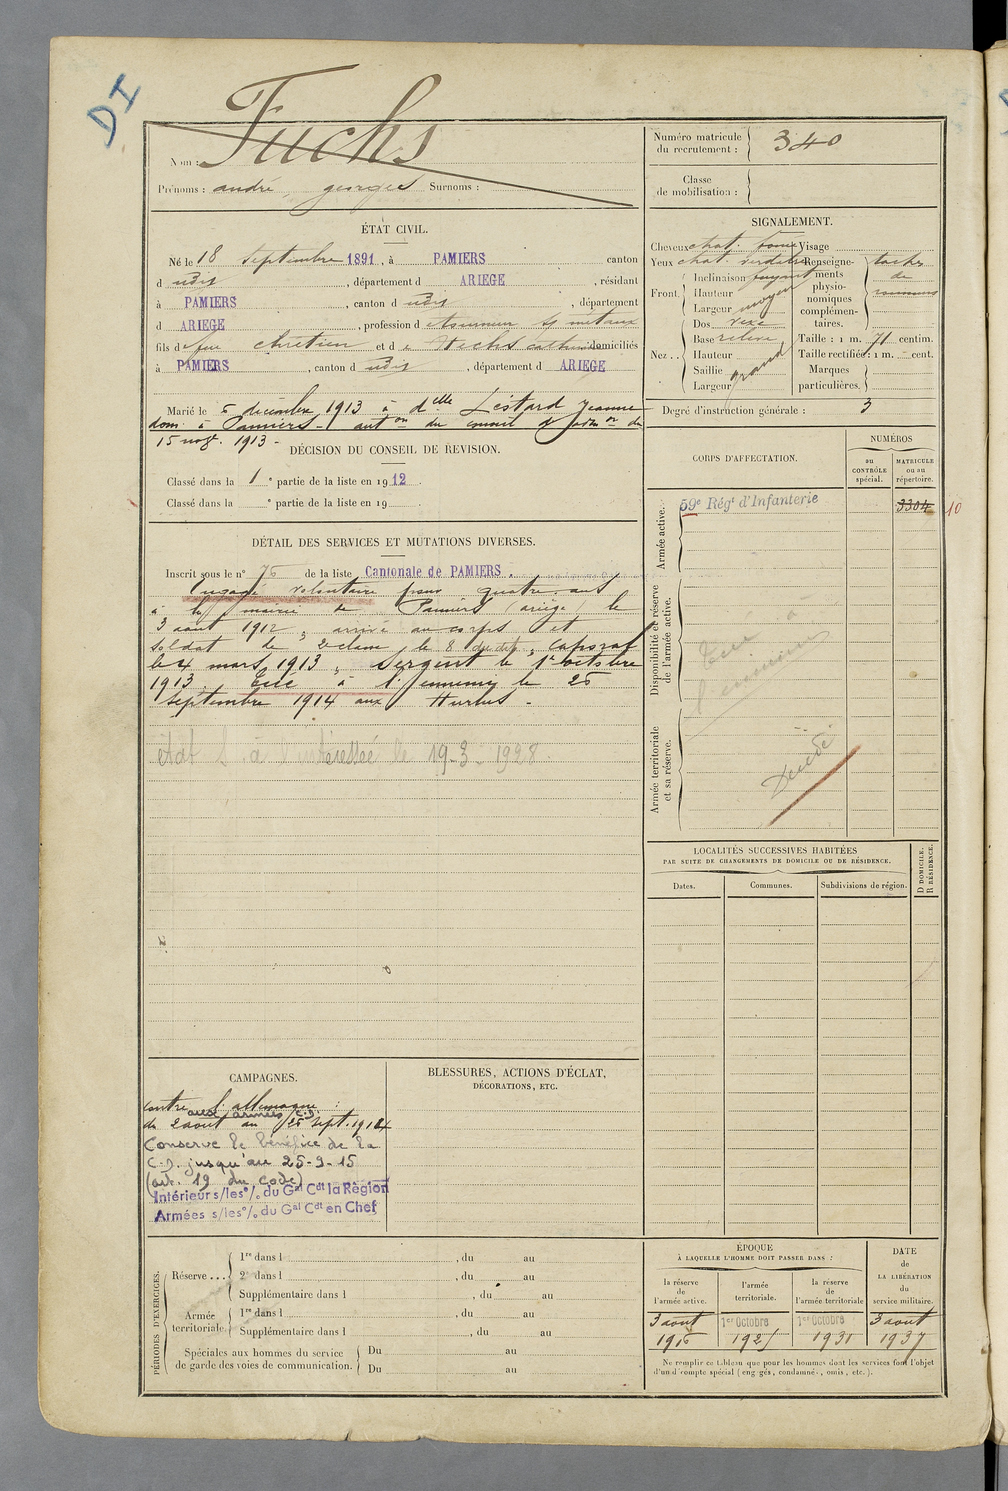 DI
Nom : Fuchs
Prénoms : andré georges Surnoms :
Numéro matricule
du recrutement : 340
Classe
de mobilisation :
ÉTAT CIVIL.
Né le 18 septembre 1891, à PAMIERS canton
d udit, département d ARIEGE, résidant
à PAMIERS, canton d udit, département
d ARIEGE, profession d Assureur métaux
fils de feu Chrétien et de catherine domiciliés
à PAMIERS, canton d udit, département d ARIEGE
Marié le 6 décembre 1913 à delle Léstard Jeanne
dom. à Pamiers. auton du conseil d'admon du
15 nov. 1913 -
DÉCISION DU CONSEIL DE REVISION.
Classé dans la 1e partie de la liste en 1912.
Classé dans la e partie de la liste en 19
DÉTAIL DES SERVICES ET MUTATIONS DIVERSES.
Inscrit sous le n° 76 de la liste Cantonale de PAMIERS.
Engagé volontaire pour quatre ans
à la mairie de Pamiers (ariège) le
3 aout 1912, arrivé au corps et
soldat de 2e classe le 8 dudit, caporal
le 4 mars 1913, Sergent le 1er octobre
1913. Tué à l'ennemi le 25
septembre 1914 aux Hurlus.
état à l'intéressée le 19-3-1928.
SIGNALEMENT.
Cheveux chat. foncé Visage
Yeux chat. verdâtre
Front. Inclinaison fuyant
Hauteur
Largeur moyen
Nez .. Dos vexe
Base relevé
Hauteur
Saillie
Largeur grand
Renseigne-
ments
physio-
nomiques
complémen-
taires. taches
de
rousseurs
Taille : 1 m. 71 centim.
Taille rectifiée : 1 m. - cent.
Marques
particulières.
Degré d'instruction générale : 3
CORPS D'AFFECTATION.
NUMÉROS
au
CONTRÔLE
spécial.
MATRICULE
ou au
répertoire.
Armée active.
59e Régt d'Infanterie 3304 10
Disponibilité et réserve
de l'armée active.
Tué à
l'ennemi
Armée territoriale
et sa réserve.
Décédé
LOCALITÉS SUCCESSIVES HABITÉES
PAR SUITE DE CHANGEMENTS DE DOMICILE OU DE RÉSIDENCE.
D DOMICILE.
R RÉSIDENCE.
Dates. Communes. Subdivisions de région.
CAMPAGNES.
contre l'allemagne :
aux armées (C.D.
du 2 aout au 25 sept. 1914
Conserve le bénéfice de la
C.D. jusqu'au 25-9-15
(art. 19 du code)
Intérieur s/les°/. du Gal Cdt la Région
Armées s/les°/. du Gal Cdt en Chef
BLESSURES, ACTIONS D'ÉCLAT,
DÉCORATIONS, ETC.
PÉRIODES D'EXERCICES.
Réserve ... 1re dans l , du au
2e dans l , du au
Supplémentaire dans l , du au
Armée
territoriale. 1re dans l , du au
Supplémentaire dans l , du au
Spéciales aux hommes du service
de garde des voies de communication. Du au
Du au
ÉPOQUE
À LAQUELLE L'HOMME DOIT PASSER DANS :
la réserve
de
l'armée active.
l'armée
territoriale.
la réserve
de
l'armée territoriale
DATE
de
LA LIBÉRATION
du
service militaire.
3 aout 1er Octobre 1er Octobre 3 aout
1916 1925 1931 1937
Ne remplir ce tableau que pour les hommes dont les services font l'objet
d'un d'compte spécial (engagés, condamnés, omis, etc.).